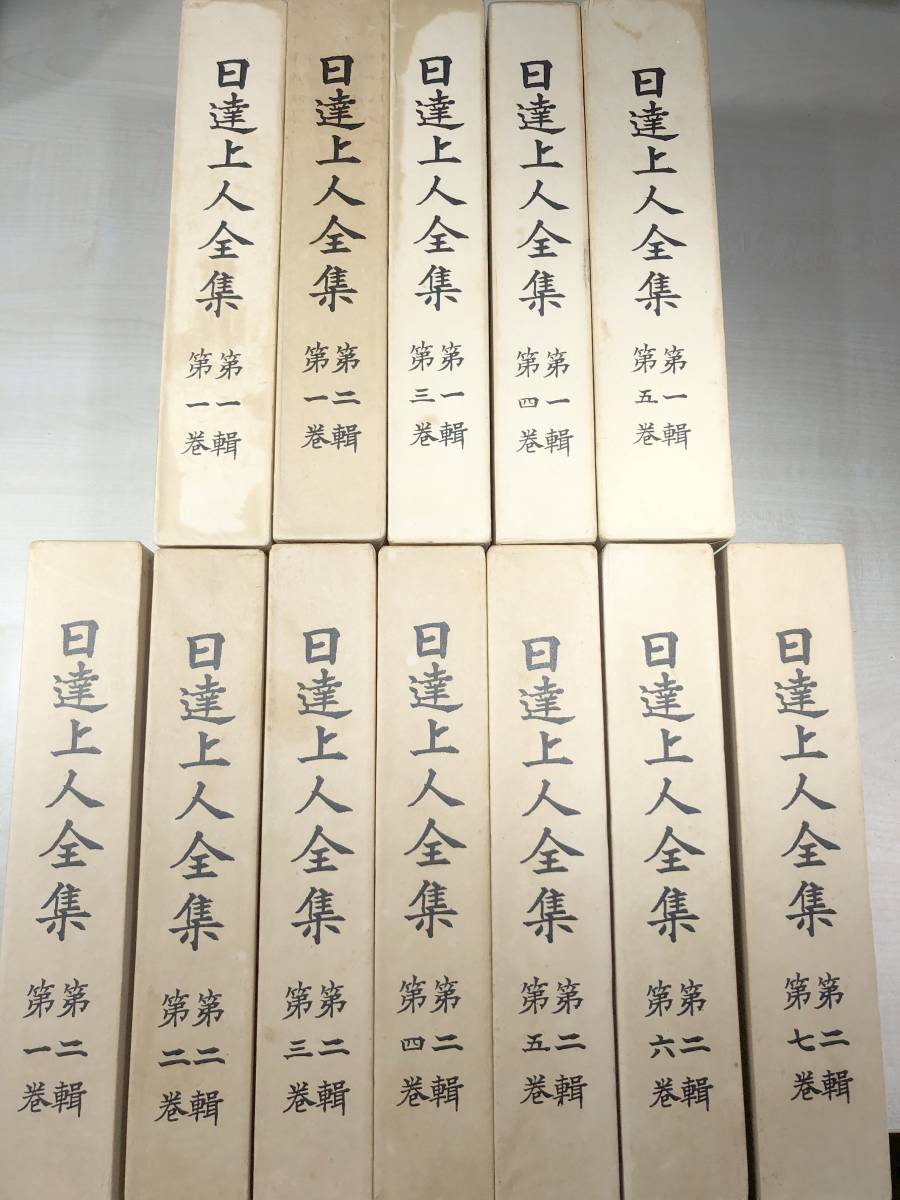 日達上人全集
第一輯
第一巻
日達上人全集
第二輯
第一巻
日達上人全集
第一輯
第三巻
日達上人全集
第一輯
第四巻
日達上人全集
第一輯
第五巻
日達上人全集
第二輯
第一巻
日達上人全集
第二輯
第二巻
日達上人全集
第二輯
第三巻
日達上人全集
第二輯
第四巻
日達上人全集
第二輯
第五巻
日達上人全集
第二輯
第六巻
日達上人全集
第二輯
第七巻